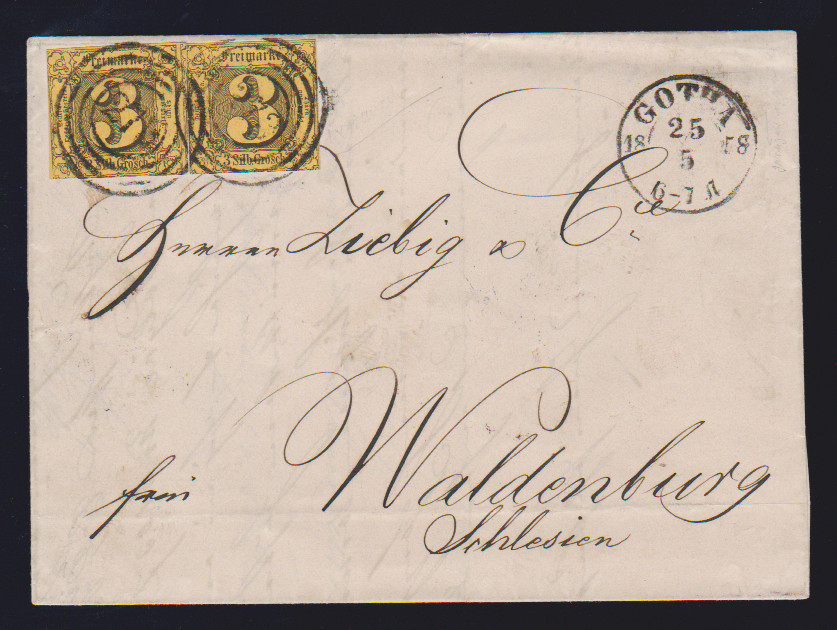 Freimarke Freimarke
3 3
3 Silb. Grosch. 3 Silb. Grosch.
GOTHA
25
18 58
5
6-7 A
Herren Liebig & Cie
frei Waldenburg
Schlesien